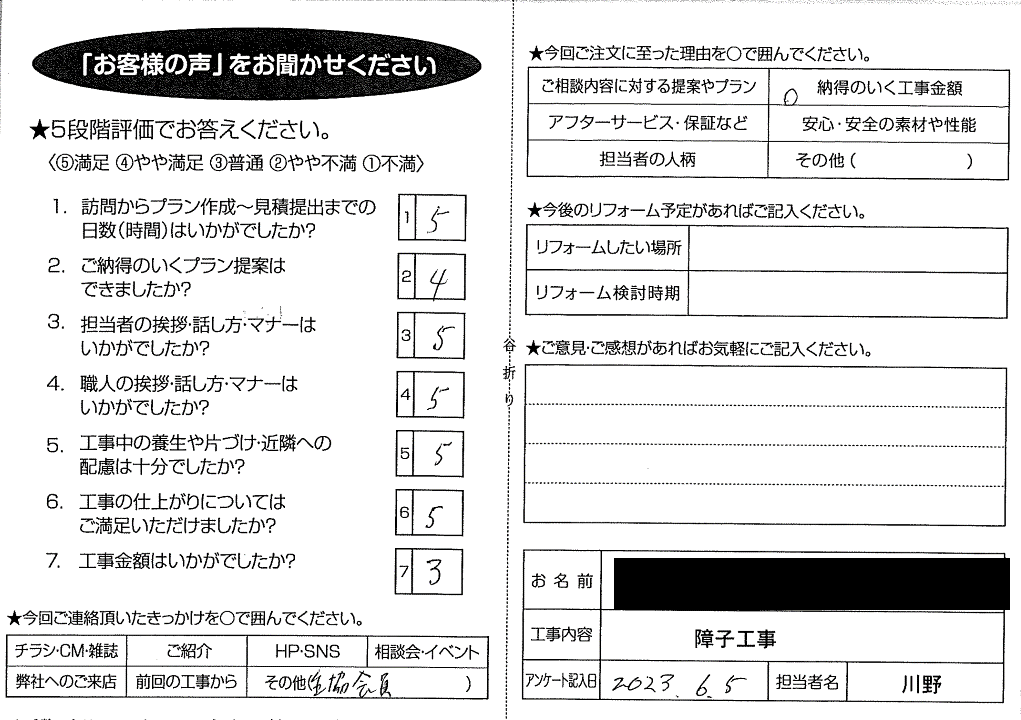 「お客様の声」をお聞かせください
★5段階評価でお答えください。
〈⑤満足 ④やや満足 ③普通 ②やや不満 ①不満〉
1. 訪問からプラン作成〜見積提出までの
日数(時間)はいかがでしたか?
1 5
2. ご納得のいくプラン提案は
できましたか?
2 4
3. 担当者の挨拶・話し方・マナーは
いかがでしたか?
3 5
4. 職人の挨拶・話し方・マナーは
いかがでしたか?
4 5
5. 工事中の養生や片づけ・近隣への
配慮は十分でしたか?
5 5
6. 工事の仕上がりについては
ご満足いただけましたか?
6 5
7. 工事金額はいかがでしたか?
7 3
★今回ご連絡頂いたきっかけを○で囲んでください。
チラシ・CM・雑誌 ご紹介 HP・SNS 相談会・イベント
弊社へのご来店 前回の工事から その他(生協会員 )
谷折り
★今回ご注文に至った理由を○で囲んでください。
ご相談内容に対する提案やプラン 納得のいく工事金額
アフターサービス・保証など 安心・安全の素材や性能
担当者の人柄 その他( )
★今後のリフォーム予定があればご記入ください。
リフォームしたい場所
リフォーム検討時期
★ご意見・ご感想があればお気軽にご記入ください。
お名前
工事内容 障子工事
アンケート記入日 2023.6.5 担当者名 川野